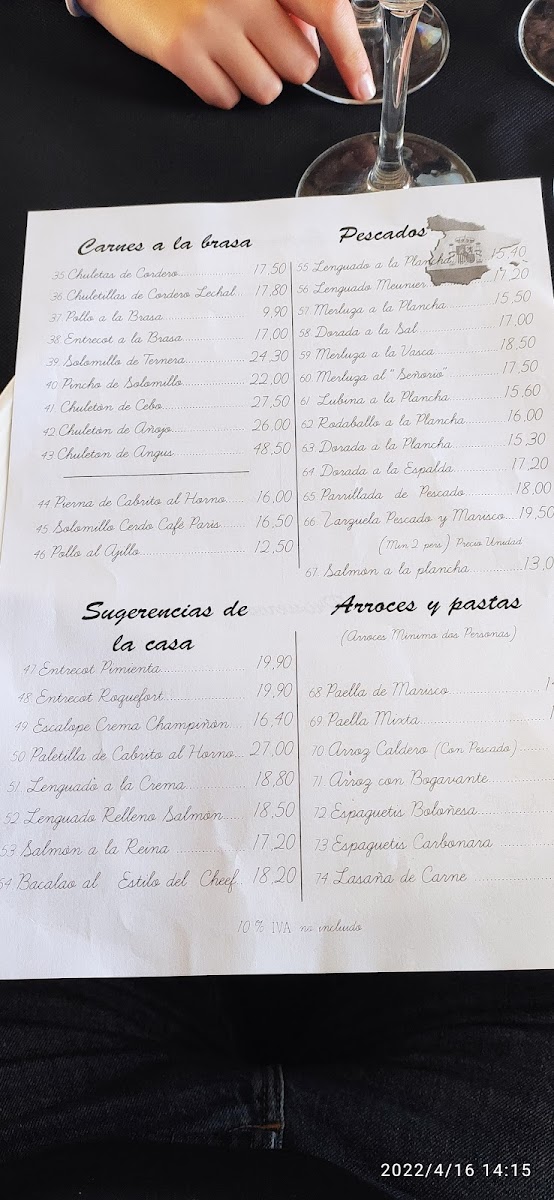 Carnes a la brasa
35 Chuletas de Cordero 17,50
36 Chuletillas de Cordero Lechal 17,80
37 Pollo a la Brasa 9,90
38 Entrecot a la Brasa 17,00
39 Solomillo de Ternera 24,30
40 Pincho de Solomillo 22,00
41 Chuletón de Cebo 27,50
42 Chuletón de Añojo 26,00
43 Chuletón de Angus 48,50
44 Pierna de Cabrito al Horno 16,00
45 Solomillo Cerdo Café París 16,50
46 Pollo al Ajillo 12,50
Pescados
55 Lenguado a la Plancha 15,40
56 Lenguado Meunier 17,20
57 Merluza a la Plancha 15,50
58 Dorada a la Sal 17,00
59 Merluza a la Vasca 18,50
60 Merluza al "Señorio" 17,50
61 Lubina a la Plancha 15,60
62 Rodaballo a la Plancha 16,00
63 Dorada a la Plancha 15,30
64 Dorada a la Espalda 17,20
65 Parrillada de Pescado 18,00
66 Zarguela Pescado y Marisco 19,50
(Min 2 pers) Precio Unidad
67 Salmón a la plancha 13,0
Sugerencias de
la casa
47 Entrecot Pimienta 19,90
48 Entrecot Roquefort 19,90
49 Escalope Crema Champiñón 16,40
50 Paletilla de Cabrito al Horno 27,00
51 Lenguado a la Crema 18,80
52 Lenguado Relleno Salmón 18,50
53 Salmón a la Reina 17,20
54 Bacalao al Estilo del Cheef 18,20
Arroces y pastas
(Arroces Mínimo dos Personas)
68 Paella de Marisco
69 Paella Mixta
70 Arroz Caldero (Con Pescado)
71 Arroz con Bogavante
72 Espaguetis Boloñesa
73 Espaguetis Carbonara
74 Lasaña de Carne
10 % IVA no incluido
2022/4/16 14:15